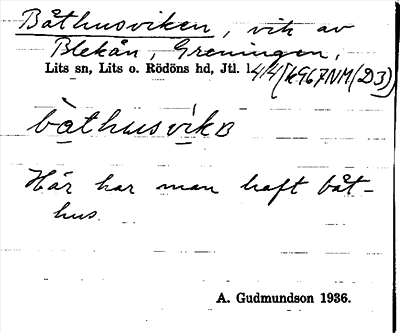 Båthusviken, vik av
Blekån, Greningen,
Lits sn, Lits o. Rödöns hd, Jtl. 14/4
båthusvikɐ
Här har man haft båt-
hus.
A. Gudmundson 1936.